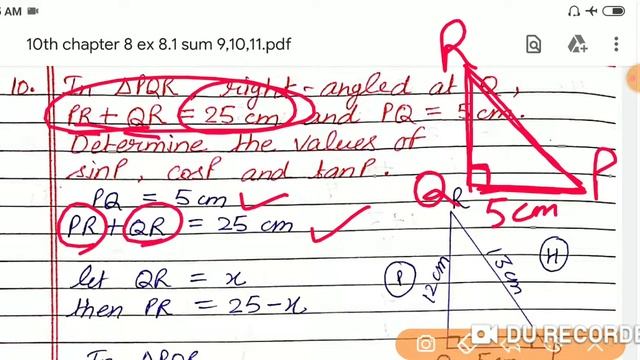 5 AM
10th chapter 8 ex 8.1 sum 9,10,11.pdf
10. In ΔPQR, right-angled at Q,
PR + QR = 25 cm and PQ = 5 cm.
Determine the values of
sinP, cosP and tanP.
PQ = 5 cm
PR + QR = 25 cm
let QR = x
then PR = 25-x
In ΔPQR
R
Q
P
5cm
R
P
12cm
13cm
H
5cm
DU RECORDE